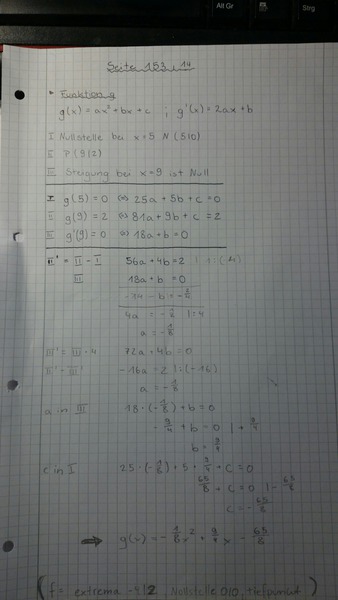 Alt Gr
Strg
Seite 153 14
Funktion g
g(x) = ax² + bx + c ; g'(x) = 2ax + b
I Nullstelle bei x = 5 N (5|0)
II P (9|2)
III Steigung bei x = 9 ist Null
I g(5) = 0 (=) 25a + 5b + c = 0
II g(9) = 2 (=) 81a + 9b + c = 2
III g'(9) = 0 (=) 18a + b = 0
II' = II - I 56a + 4b = 2 | : (-4)
III 18a + b = 0
-14 - b = -2/4
4a = -1/2 | : 4
a = -1/8
III' = III · 4 72a + 4b = 0
II' - III' -16a = 2 | : (-16)
a = -1/8
a in III 18 · (-1/8) + b = 0
-9/4 + b = 0 | + 9/4
b = 9/4
c in I 25 · (-1/8) + 5 · 9/4 + c = 0
65/8 + c = 0 | - 65/8
c = -65/8
g(x) = -1/8 x² + 9/4 x - 65/8
(f = extrema -4|2, Nullstelle 0|0, tiefpunkt)